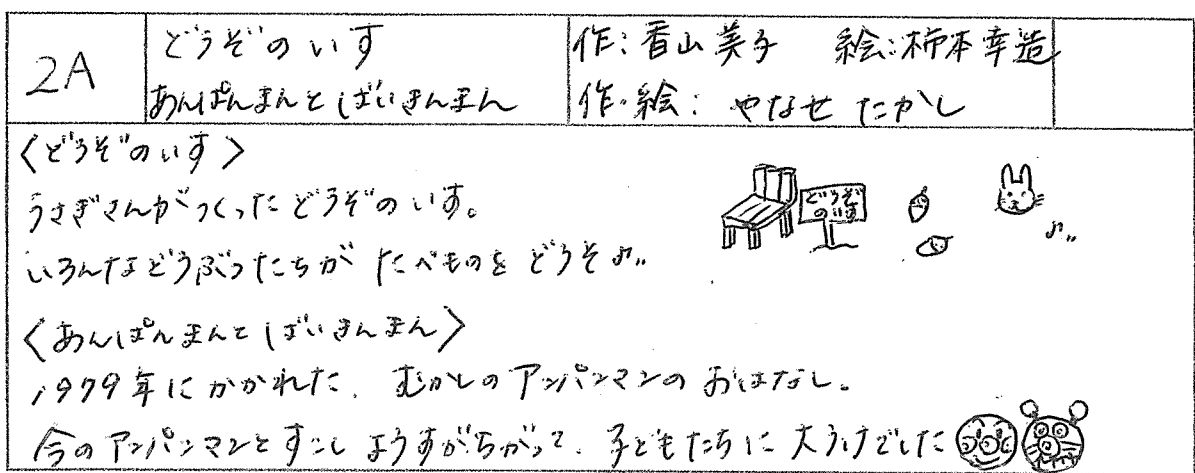 2A
どうぞのいす
あんぱんまんとばいきんまん
作：香山美子　絵：柿本幸造
作・絵：やなせたかし
〈どうぞのいす〉
うさぎさんがつくったどうぞのいす。
いろんなどうぶつたちが たべものを どうぞ♪
どうぞ
のいす
〈あんぱんまんとばいきんまん〉
1979年にかかれた、むかしのアンパンマンのおはなし。
今のアンパンマンとすこしようすがちがって、子どもたちに大うけでした